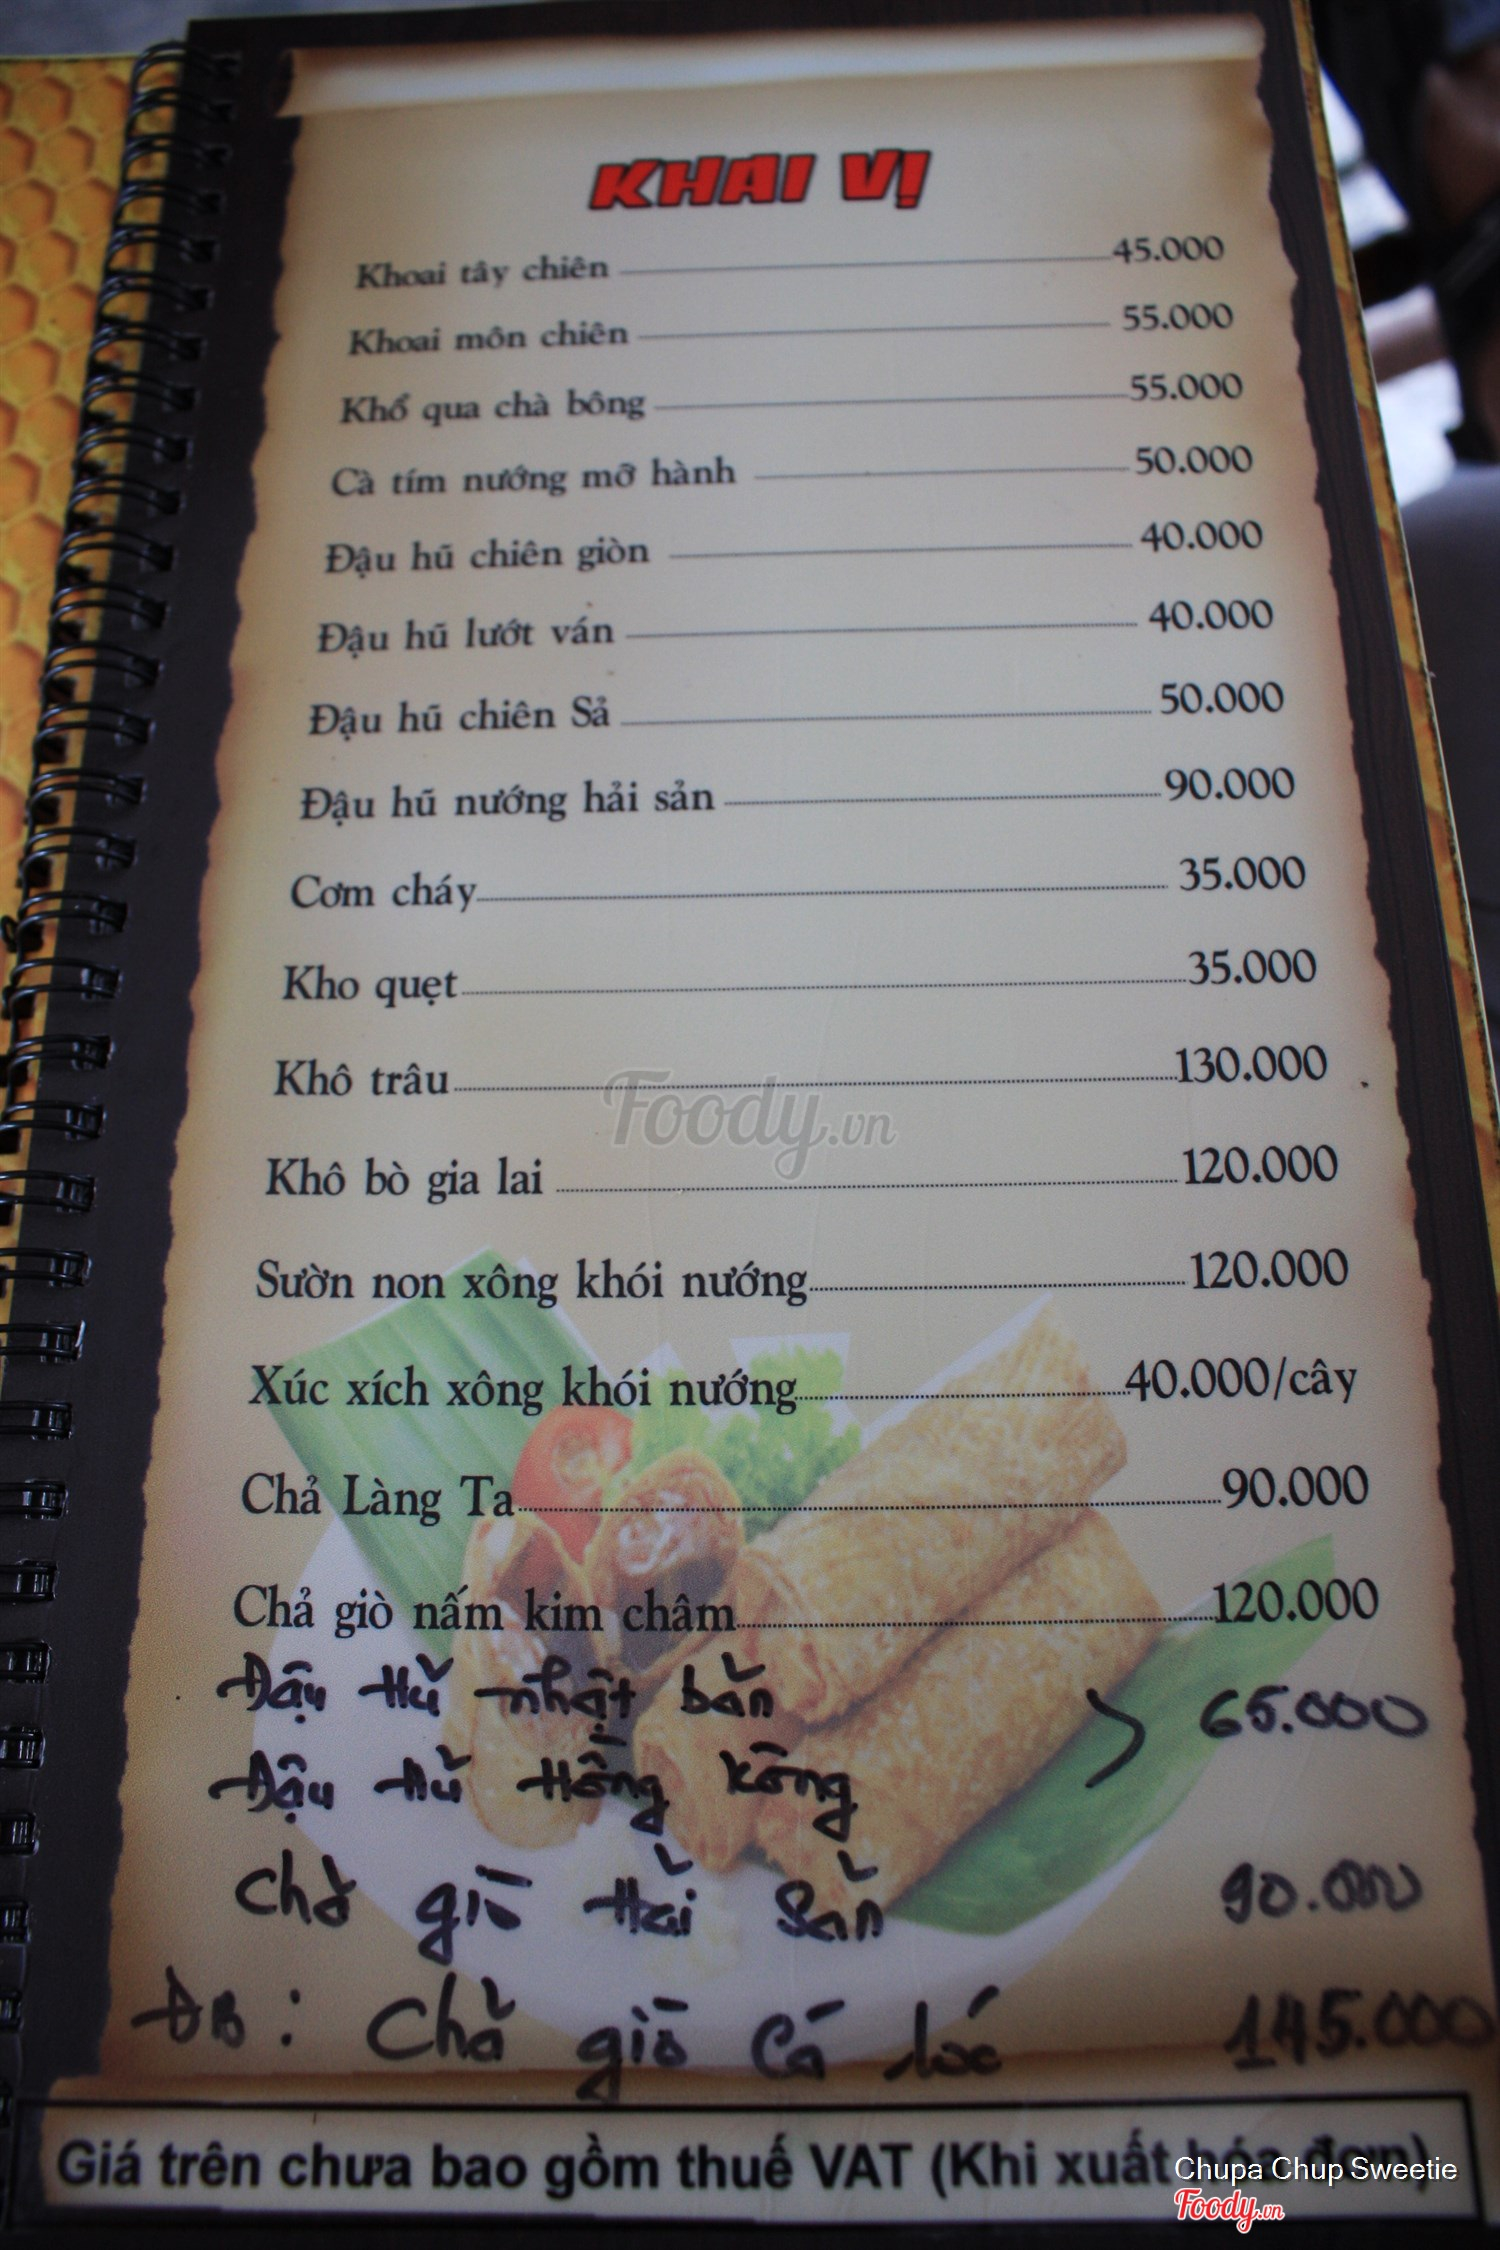 KHAI VỊ
Khoai tây chiên 45.000
Khoai môn chiên 55.000
Khổ qua chà bông 55.000
Cà tím nướng mỡ hành 50.000
Đậu hũ chiên giòn 40.000
Đậu hũ lướt ván 40.000
Đậu hũ chiên Sả 50.000
Đậu hũ nướng hải sản 90.000
Cơm cháy 35.000
Kho quẹt 35.000
Khô trâu 130.000
Foody.vn
Khô bò gia lai 120.000
Sườn non xông khói nướng 120.000
Xúc xích xông khói nướng 40.000/cây
Chả Làng Ta 90.000
Chả giò nấm kim châm 120.000
Đậu Hủ nhật bản
65.000
Đậu Hủ Hồng Kông
Chả giò Hải Sản 90.000
ĐB: Chả giò Cá lóc 145.000
Giá trên chưa bao gồm thuế VAT (Khi xuất hóa đơn)
Chupa Chup Sweetie
Foody.vn